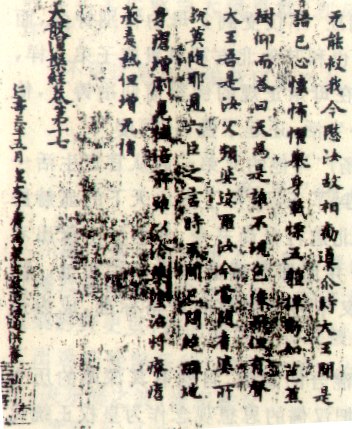 无能救我今愍汝故相勸導介時大王聞是
語已心懷怖懼舉身戰慄五體掉動如芭蕉
樹仰而荅曰天為是誰不現色像而但有聲
大王吾是汝父頻婆娑羅汝今當隨耆婆所
說莫隨耶見六臣之言時王聞已悶絕躃地
身瘡增劇臭穢倍前雖以冷藥塗治將療瘡
蒸毒熱但增无損
大般涅槃經卷第十七
仁壽三年五月